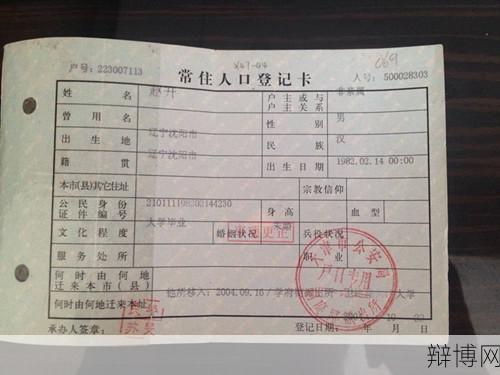 户号: 223007113
X47-04
069
常住人口登记卡
人号: 500028303
姓 名 赵 户主或与户主关系 非亲属
曾用名 性别 男
出生地 辽宁沈阳市 民族 汉
籍贯 辽宁沈阳市 出生日期 1982.02.14 00:00
本市(县)其它住址 宗教信仰
公民身份证件编号 210111198202144230 身高 血型
文化程度 大学毕业 婚姻状况 未婚 更正 兵役状况
服务处所 职业
何时由何地迁来本市(县) 他所移入: 2004.09.16 学府 大学
何时由何地迁来本址
市公安局
户口专用
承办人签章: 登记日期: 年 月 日
辩博网